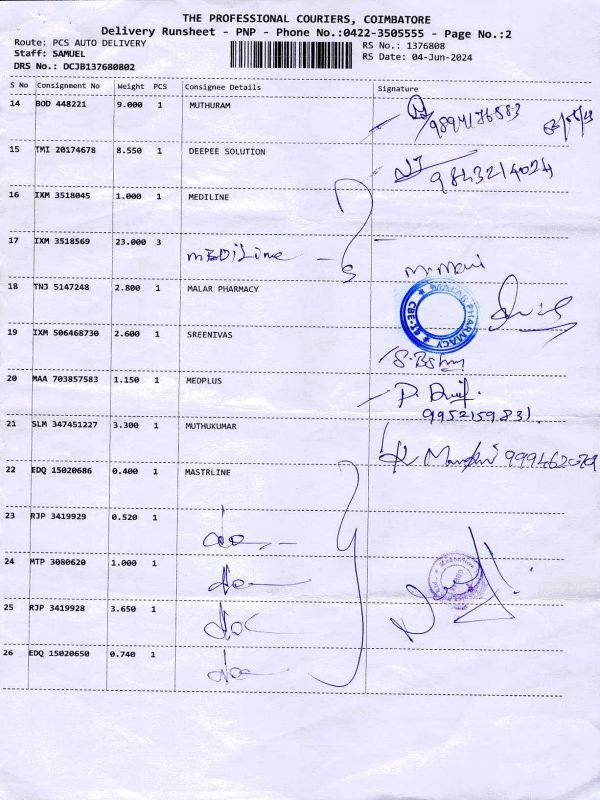 THE PROFESSIONAL COURIERS, COIMBATORE
Delivery Runsheet - PNP - Phone No.:0422-3505555 - Page No.:2
Route: PCS AUTO DELIVERY
RS No.: 1376808
Staff: SAMUEL
RS Date: 04-Jun-2024
DRS No.: DCJB137680802
S No Consignment No Weight PCS Consignee Details Signature
14 BOD 448221 9.000 1 MUTHURAM
9894176583
15 TMI 20174678 8.550 1 DEEPEE SOLUTION
9843214024
16 IXM 3518045 1.000 1 MEDILINE
17 IXM 3518569 23.000 3 MEDiLine
18 TNJ 5147248 2.800 1 MALAR PHARMACY
PHARMACY
19 IXM 506468730 2.600 1 SREENIVAS
20 MAA 703857583 1.150 1 MEDPLUS
9952159831
21 SLM 347451227 3.300 1 MUTHUKUMAR
22 EDQ 15020686 0.400 1 MASTRLINE
23 RJP 3419929 0.520 1
24 MTP 3080620 1.000 1
25 RJP 3419928 3.650 1
26 EDQ 15020650 0.740 1